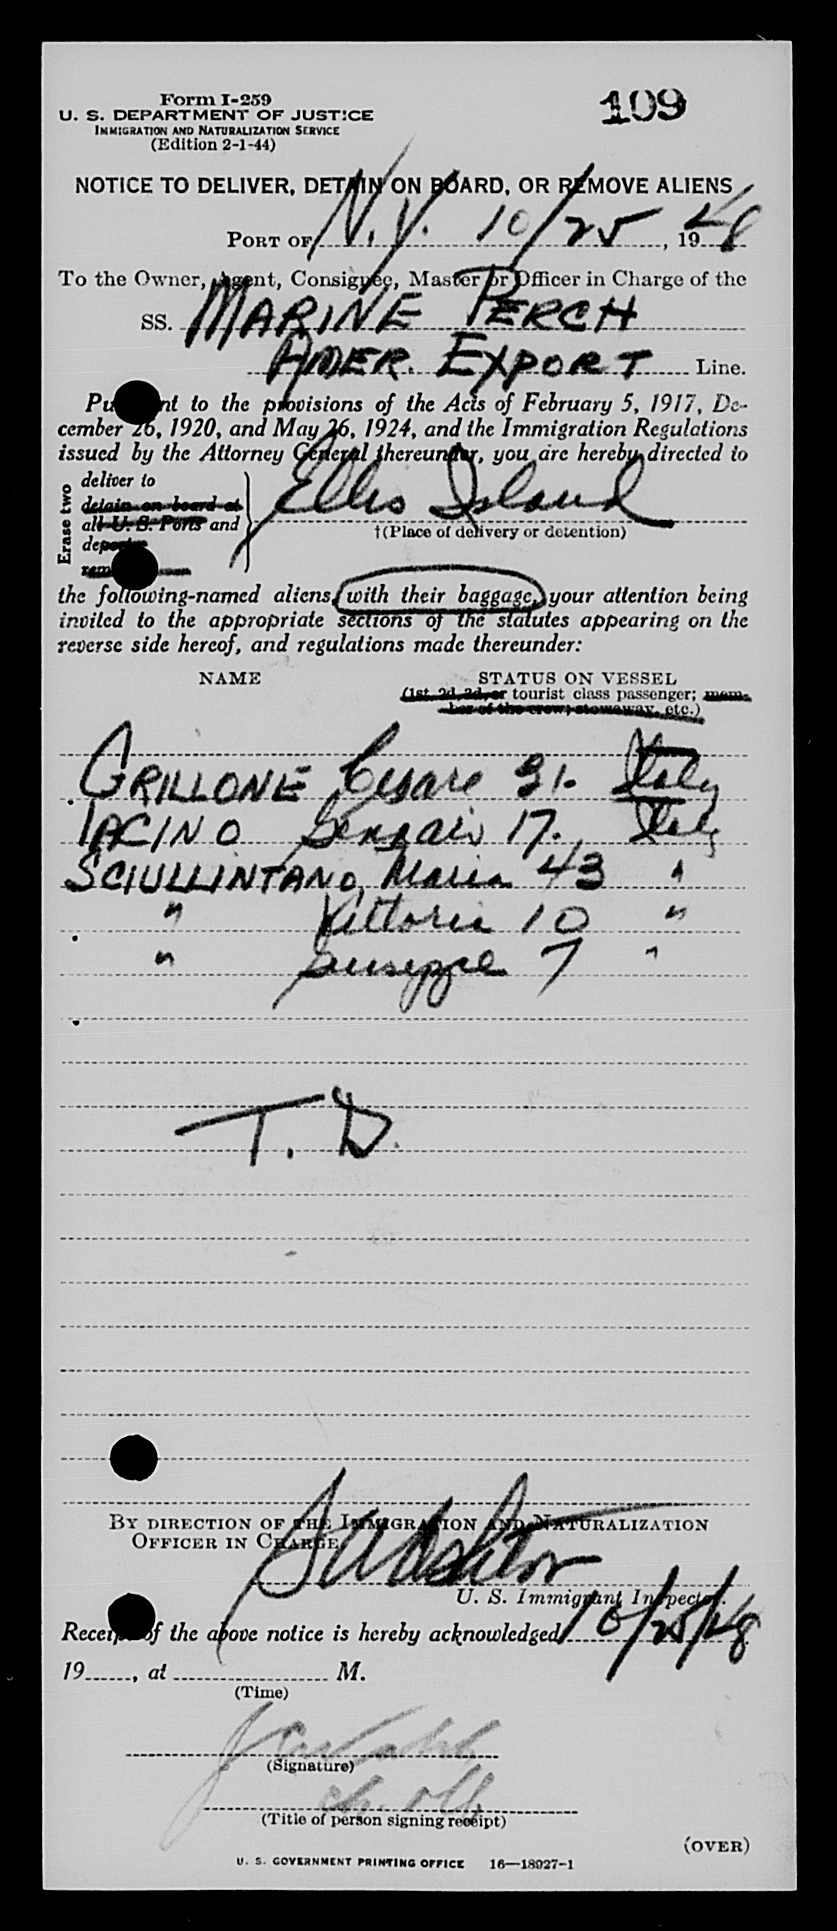 Form I-259
U. S. DEPARTMENT OF JUSTICE
IMMIGRATION AND NATURALIZATION SERVICE
(Edition 2-1-44)
109
NOTICE TO DELIVER, DETAIN ON BOARD, OR REMOVE ALIENS
PORT OF N.Y. 10/25, 1948
To the Owner, Agent, Consignee, Master or Officer in Charge of the
SS. MARINE PERCH
AMER. EXPORT Line.
Pursuant to the provisions of the Acts of February 5, 1917, De-
cember 26, 1920, and May 26, 1924, and the Immigration Regulations
issued by the Attorney General thereunder, you are hereby directed to
Erase two
deliver to
detain on board at
all U. S. Ports and
Ellis Island
†(Place of delivery or detention)
the following-named aliens, with their baggage, your attention being
invited to the appropriate sections of the statutes appearing on the
reverse side hereof, and regulations made thereunder:
NAME STATUS ON VESSEL
(1st, 2d, 3d, or tourist class passenger; mem-
ber of the crew; stowaway, etc.)
GRILLONE Cesare 31. Italy
IACINO 17. Italy
SCIULLINTANO, Maria 43 "
" Vittoria 10 "
" Giuseppe 7 "
T. D.
BY DIRECTION OF THE IMMIGRATION AND NATURALIZATION
OFFICER IN CHARGE
U. S. Immigrant Inspector.
Receipt of the above notice is hereby acknowledged 10/25/48
19____, at ____ M.
(Time)
(Signature)
(Title of person signing receipt)
(OVER)
U. S. GOVERNMENT PRINTING OFFICE 16—18927-1